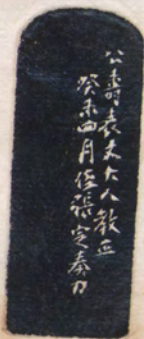 公壽表丈大人教正
癸未四月侄張定奏刀